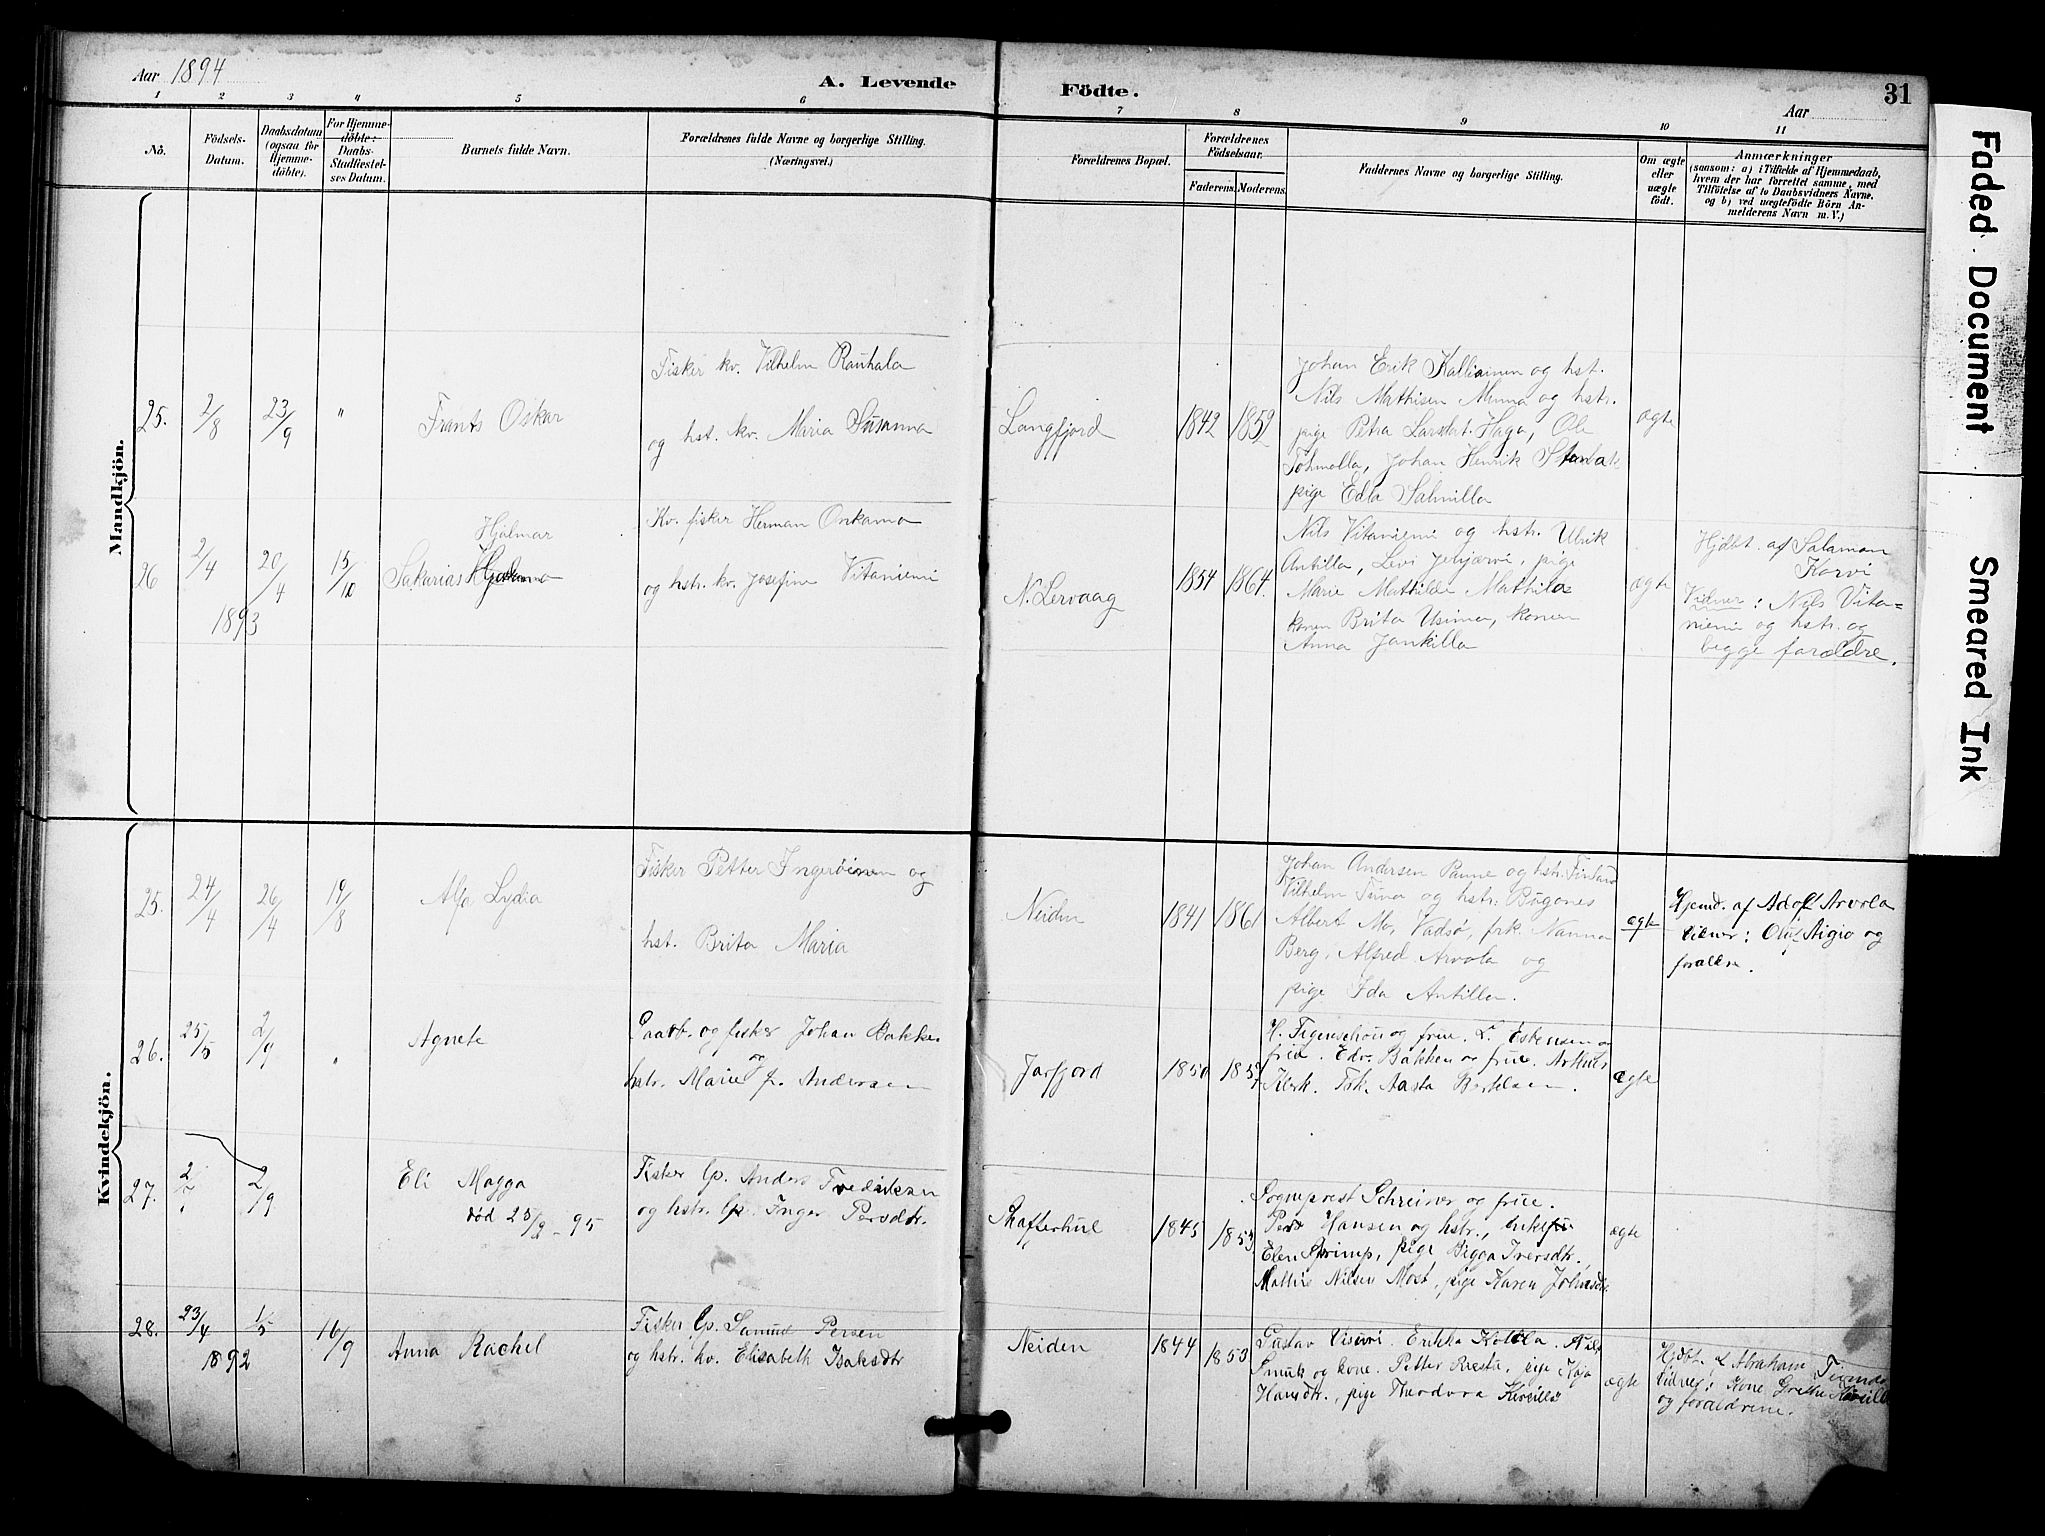 Aar 1894
A. Levende Födte.
Aar
31
1 2 3 " 5 6 7 8 9 10 11
No.
Födsels-Datum.
Daabsdatum (ogsaa for Hjemme-döbte).
For Hjemme-döbte: Daabs-Stadfæstel-ses Datum.
Barnets fulde Navn.
Forældrenes fulde Navne og borgerlige Stilling.
(Næringsvei.)
Forældrenes Bopæl.
Forældrenes Födselsaar.
Faderens. Moderens.
Faddernes Navne og borgerlige Stilling.
Om ægte eller uægte födt.
Anmærkninger
(saasom: a) i Tilfælde af Hjemmedaab,
hvem der har forrettet samme, med
Tilföielse af to Daabsvidners Navne.
og b) ved uægtefödte Börn An-
melderens Navn m. V.)
Mandkjön.
25. 2/8 23/9 " Frants Oskar
Fisker kv. Vilhelm Rauhala
og hst. kv. Maria Susanna
Langfjord 1842 1852
Johan Erik Kalliainen og hst.
Nils Mathisen Menna og hstr.
pige Petra Larsdat. Haga, Ole
Johan Henrik
pige Edla Salmilla
ægte
26 2/4 1893 20/4 15/10
Hjalmar
Sakarias
Kv. fisker Herman Onkamo
og hstr. kv. Josefine Vitaniemi
N. Lervaag 1854 1864.
Nils Vitaniemi og hstr. Ulrik
Antilla, Levi Jerijærvi, pige
Marie Mathilde Mathila
konen Brita Usima, konen
Anna Jankilla
ægte
Hjdbt. af Salaman
Korvi
Vidner: Nils Vita=
niemi og hstr. og
begge forældre.
Kvindekjön.
25. 24/4 26/4 19/8 Alfa Lydia
Fisker Petter Ingeröinen og
hst. Brita Maria
Neiden 1841 1861
Johan Andersen Panne og hstr.
Vilhelm Tuna og hstr. Bugönes
Albert Mo, Vadsø, frk. Nanna
Berg, Alfred Arvola og
pige Ida Antilla.
ægte
Hjemd. af Adolf Arvola
vidner: Oluf Aigio og
forældre.
26. 25/5 2/9 " Agnete
Gaarb. og fisker Johan Bakken
og
hstr. Marie f. Andersen
Jarfjord 1850 1857
H. Figenschou og frue. L. Estensen og
frue. Edv. Bakken og frue. Arthur
Klerk. Frk. Aasta Bertelsen.
ægte
27. 2/7 2/9 Eli Magga
död 25/2 - 95
Fisker lp. Anders Fredriksen
og hstr. lp. Inger Persdtr.
Skafterhul 1845 1853
Sogneprest Schreiner og frue.
Peder Hansen og hstr., enkefru
Elen Skrimp, pige Bigga Iversdtr,
Mathis Nilsen Most, pige Karen Johnsdtr.
ægte
28. 23/4 1892 1/5 16/9 Anna Rachel
Fisker lp. Samuel Persen
og hstr. kv. Elisabeth Isaksdtr
Neiden 1844 1853
Gustav Usivi. Erikka Kottila. Nils
Smuk og kone. Petter Riesta, pige Kaja
Hansdtr., pige Theodora
ægte
Hjdbt. af Abraham
vidner: Kone Grethe
og forældrene.
Faded Document
Smeared Ink